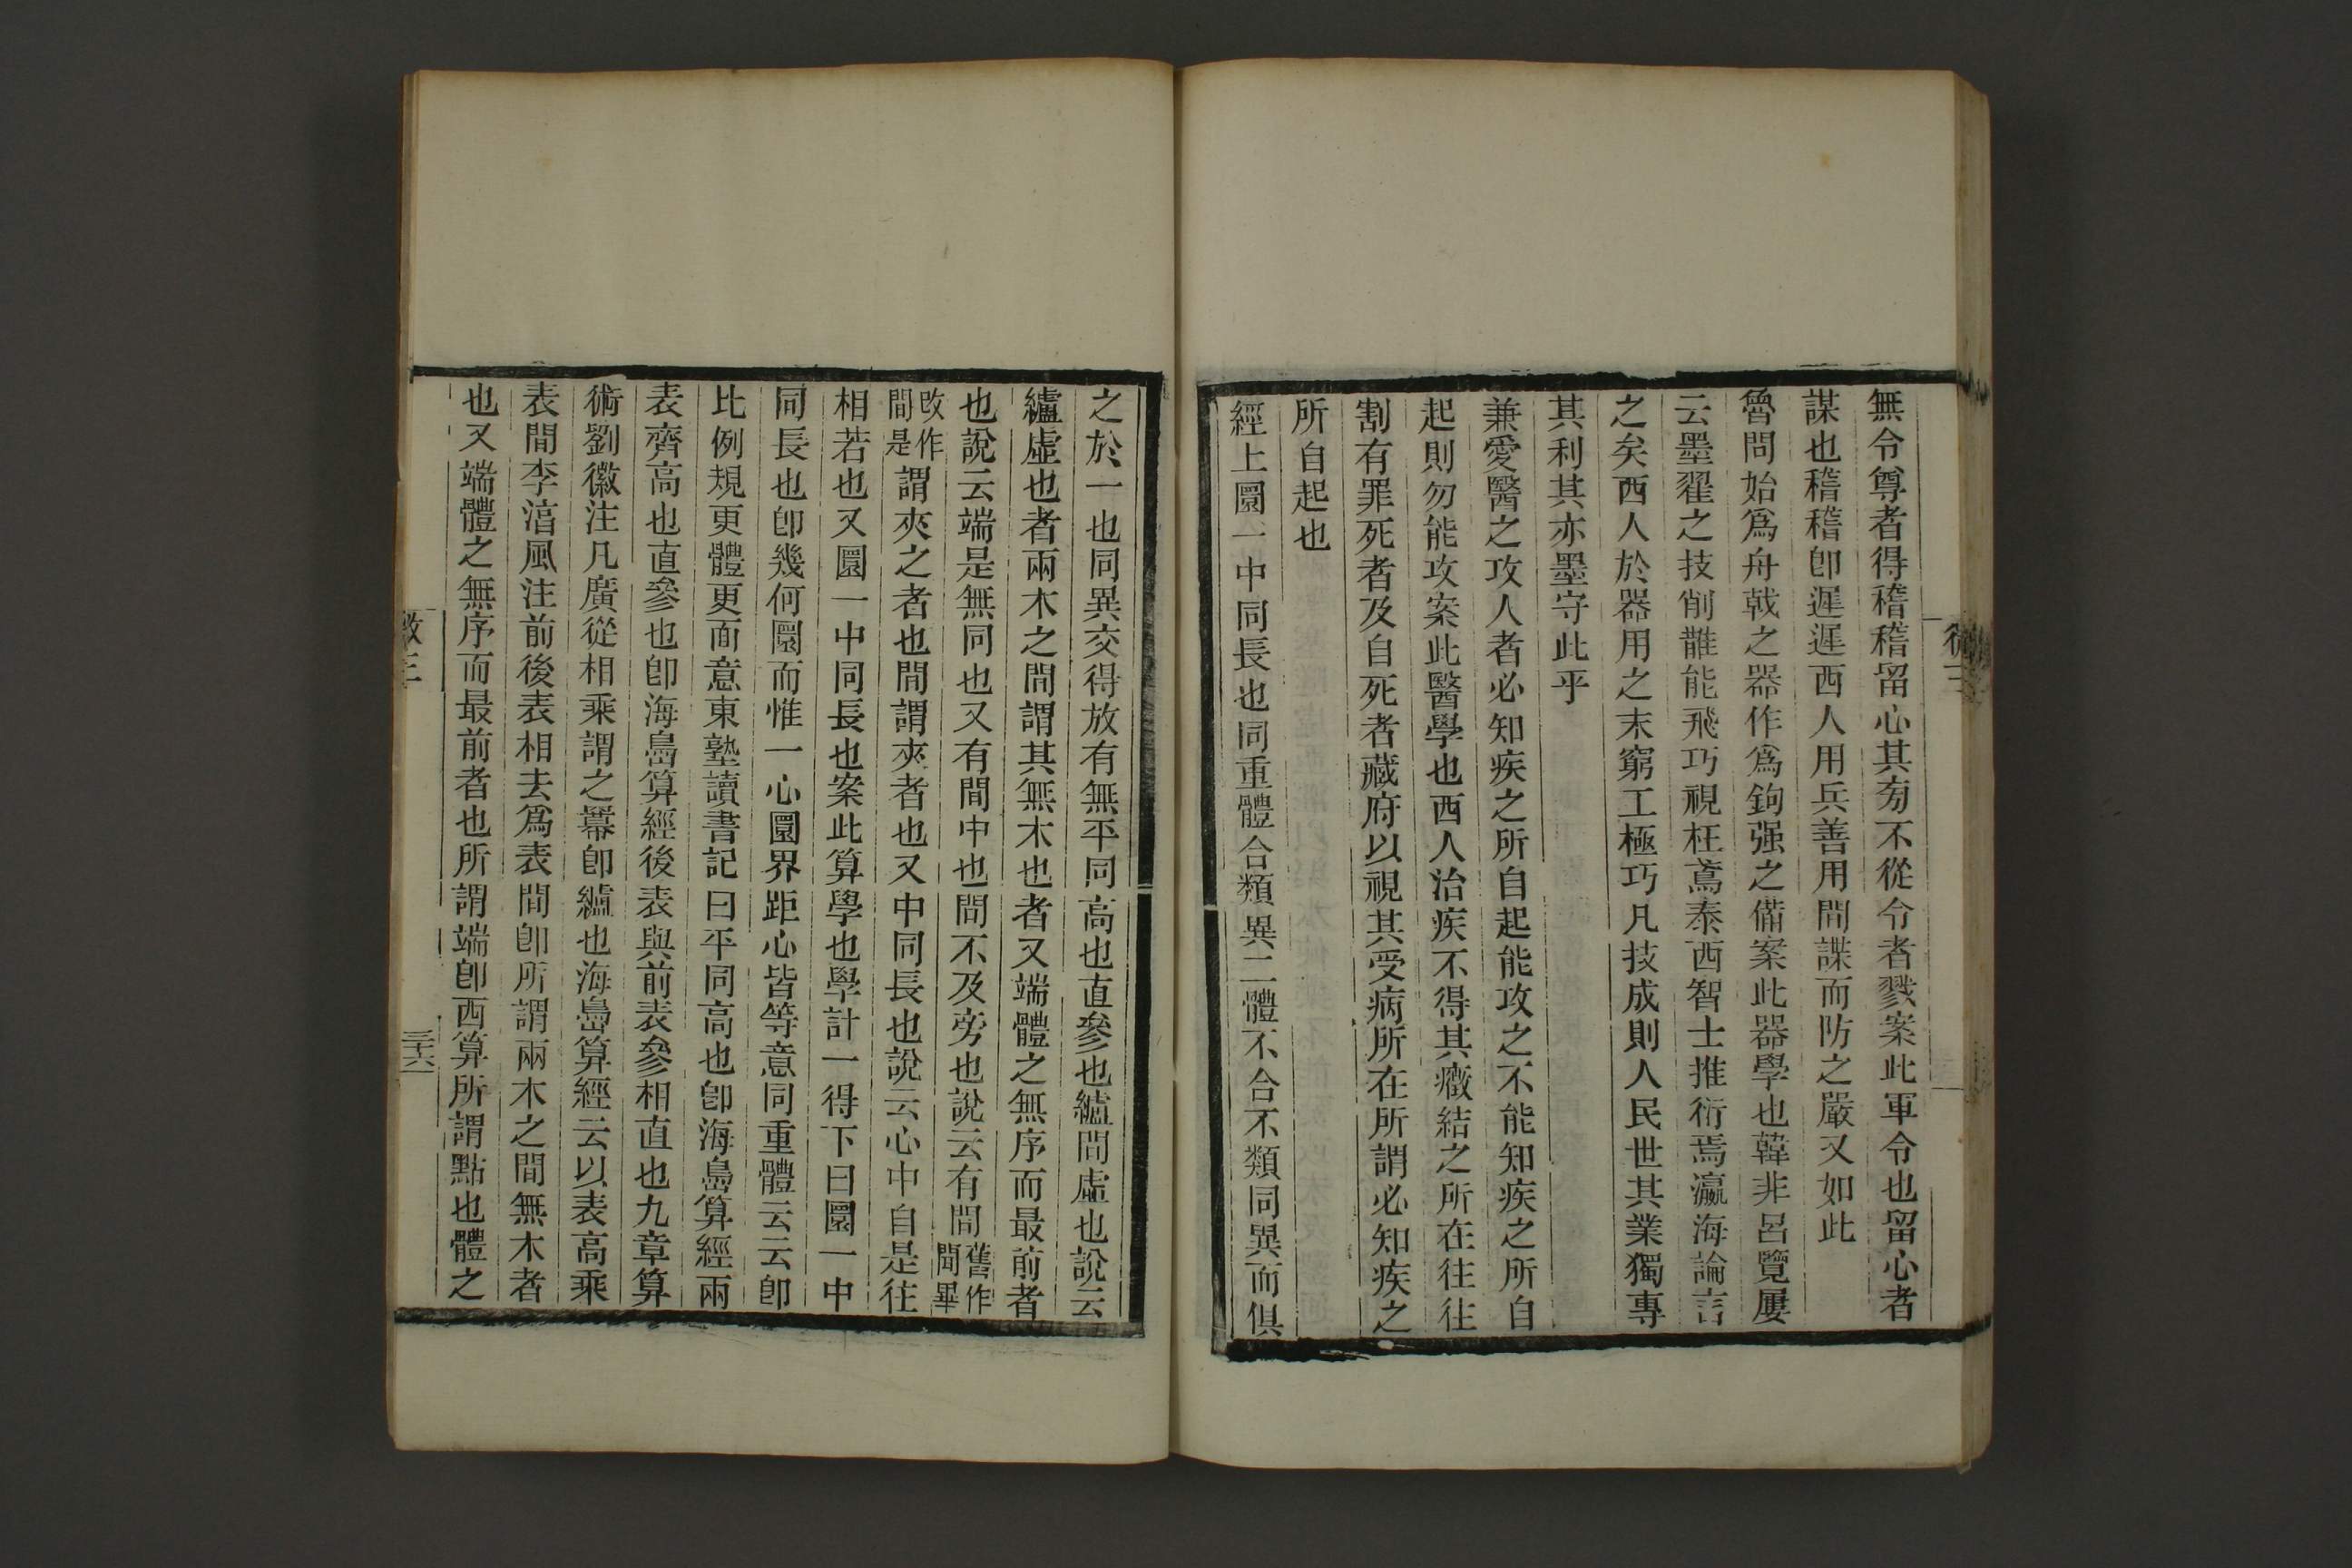 無令尊者得稽稽留心其旁不從令者戮案此軍令也留心者
謀也稽稽卽遲遲西人用兵善用間諜而防之嚴又如此
魯問始爲舟戟之器作爲鉤强之備案此器學也韓非呂覽屢
云墨翟之技削䧿能飛巧視枉鳶泰西智士推衍焉瀛海論言
之矣西人於器用之末窮工極巧凡技成則人民世其業獨專
其利其亦墨守此乎
兼愛醫之攻人者必知疾之所自起能攻之不能知疾之所自
起則勿能攻案此醫學也西人治疾不得其癥結之所在往往
割有罪死者及自死者藏府以視其受病所在所謂必知疾之
所自起也
經上圜一中同長也同重體合類異二體不合不類同異而俱
之於一也同異交得放有無平同高也直參也纑間虛也說云
纑虛也者兩木之間謂其無木也者又端體之無序而最前者
也說云端是無同也又有間中也間不及旁也說云有間舊作聞畢
改作間是謂夾之者也間謂夾者也又中同長也說云心中自是往
相若也又圜一中同長也案此算學也學計一得下曰圜一中
同長也卽幾何圜而惟一心圜界距心皆等意同重體云云卽
比例規更體更面意東塾讀書記曰平同高也卽海島算經兩
表齊高也直參也卽海島算經後表與前表參相直也九章算
術劉徽注凡廣從相乘謂之冪卽纑也海島算經云以表高乘
表間李淳風注前後表相去爲表間卽所謂兩木之間無木者
也又端體之無序而最前者也所謂端卽西算所謂點也體之
三十六